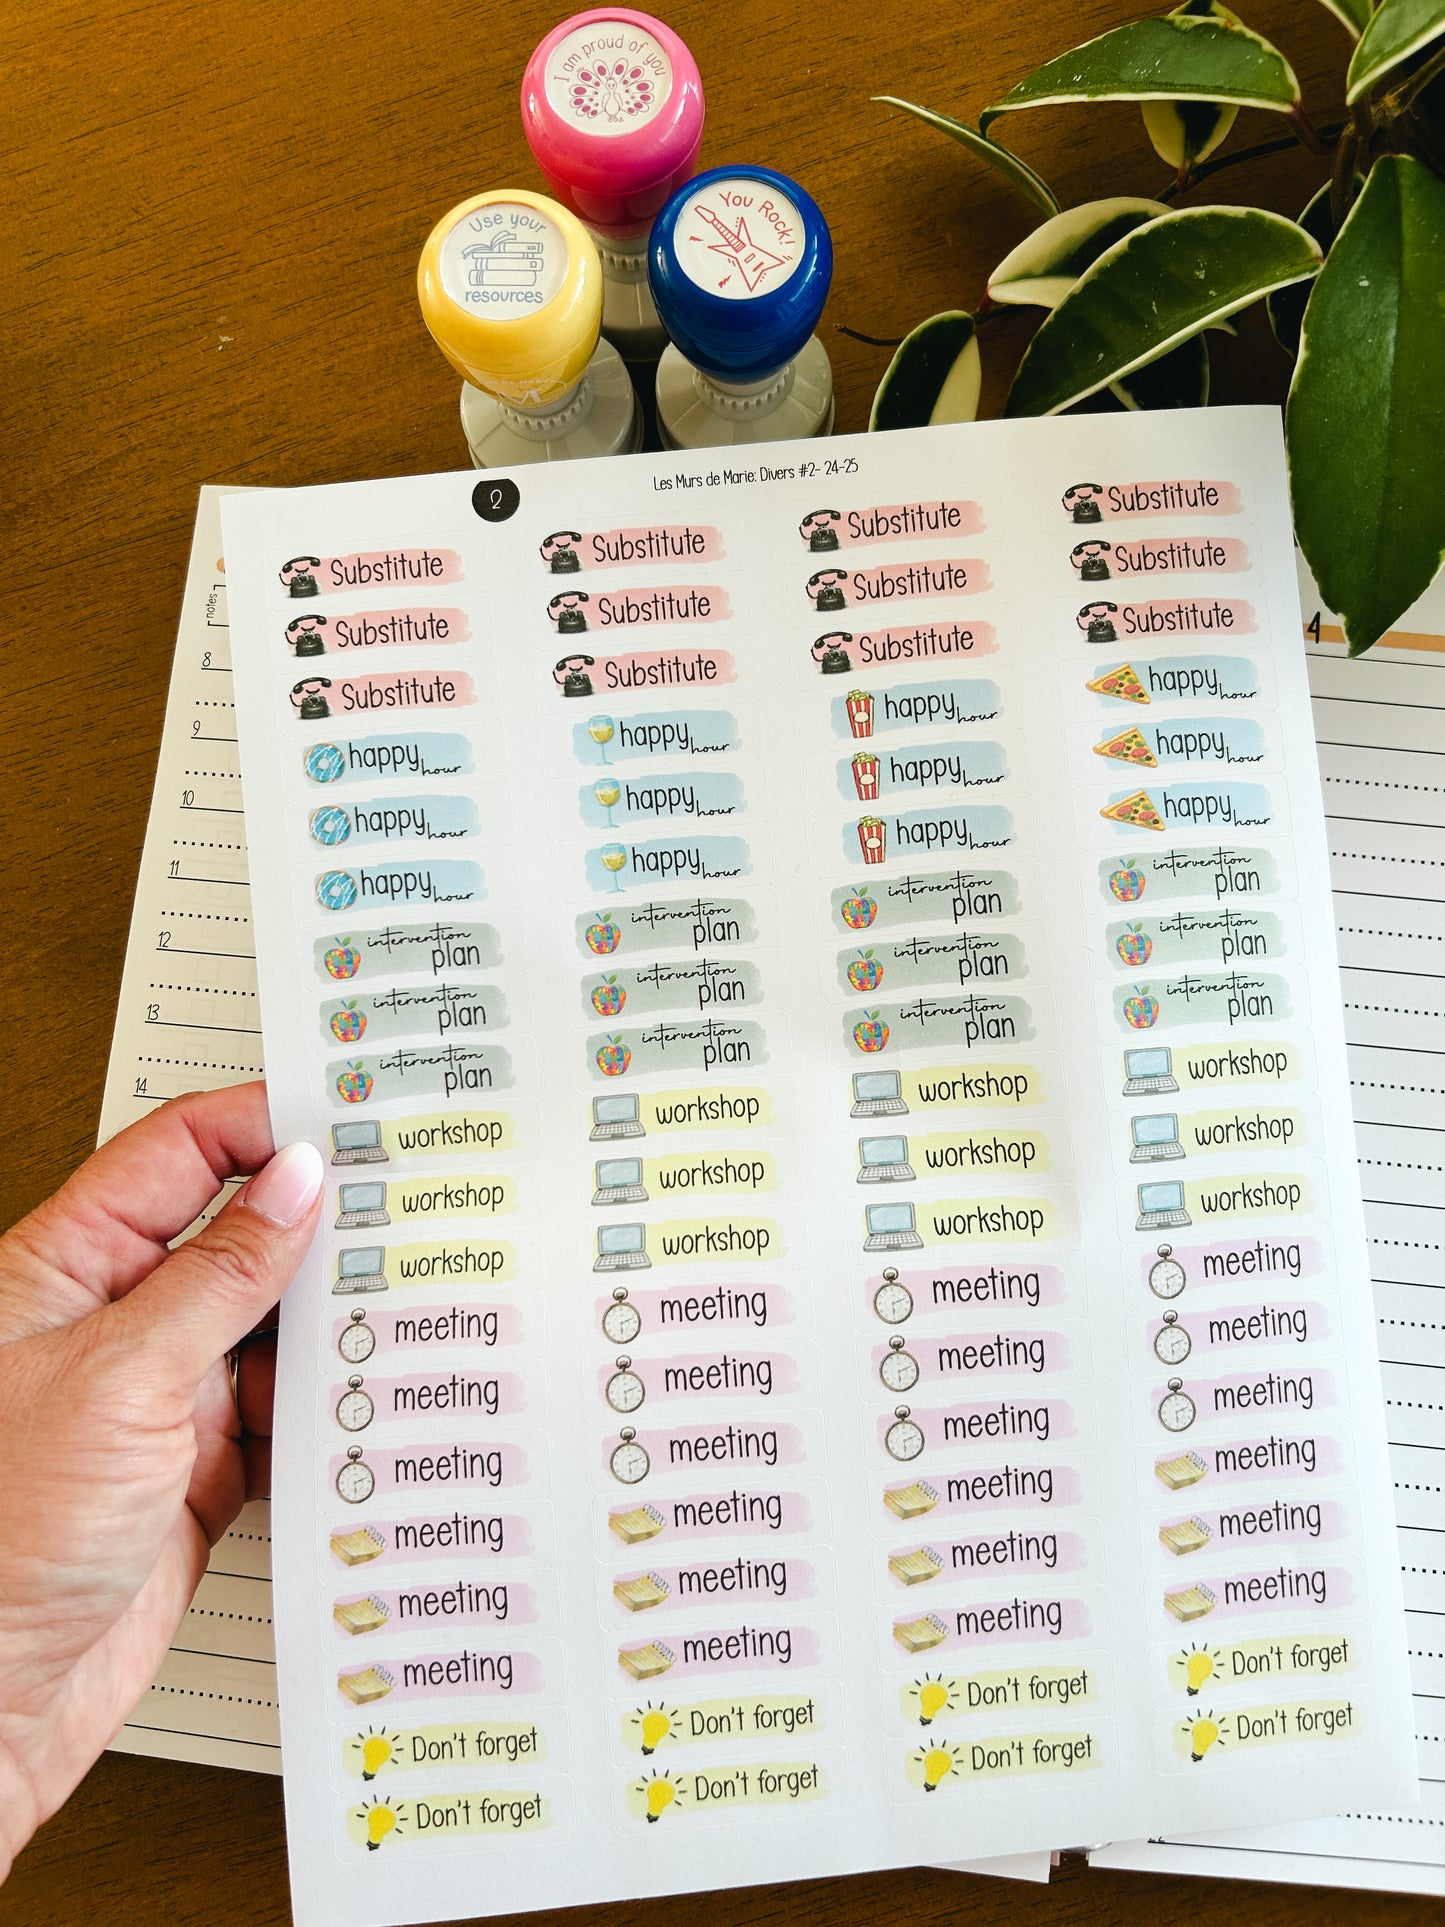 I am proud of you
You Rock!
Use your
resources
Les Murs de Marie: Divers #2- 24-25
2
Substitute
Substitute
Substitute
happy hour
happy hour
happy hour
intervention
plan
intervention
plan
intervention
plan
workshop
workshop
workshop
meeting
meeting
meeting
meeting
meeting
meeting
Don't forget
Don't forget
Substitute
Substitute
Substitute
happy hour
happy hour
happy hour
intervention
plan
intervention
plan
intervention
plan
workshop
workshop
workshop
meeting
meeting
meeting
meeting
meeting
meeting
Don't forget
Don't forget
Substitute
Substitute
Substitute
happy hour
happy hour
happy hour
intervention
plan
intervention
plan
intervention
plan
workshop
workshop
workshop
meeting
meeting
meeting
meeting
meeting
meeting
Don't forget
Don't forget
Substitute
Substitute
Substitute
happy hour
happy hour
happy hour
intervention
plan
intervention
plan
intervention
plan
workshop
workshop
workshop
meeting
meeting
meeting
meeting
meeting
meeting
Don't forget
Don't forget
notes
8
9
10
11
12
13
14
4